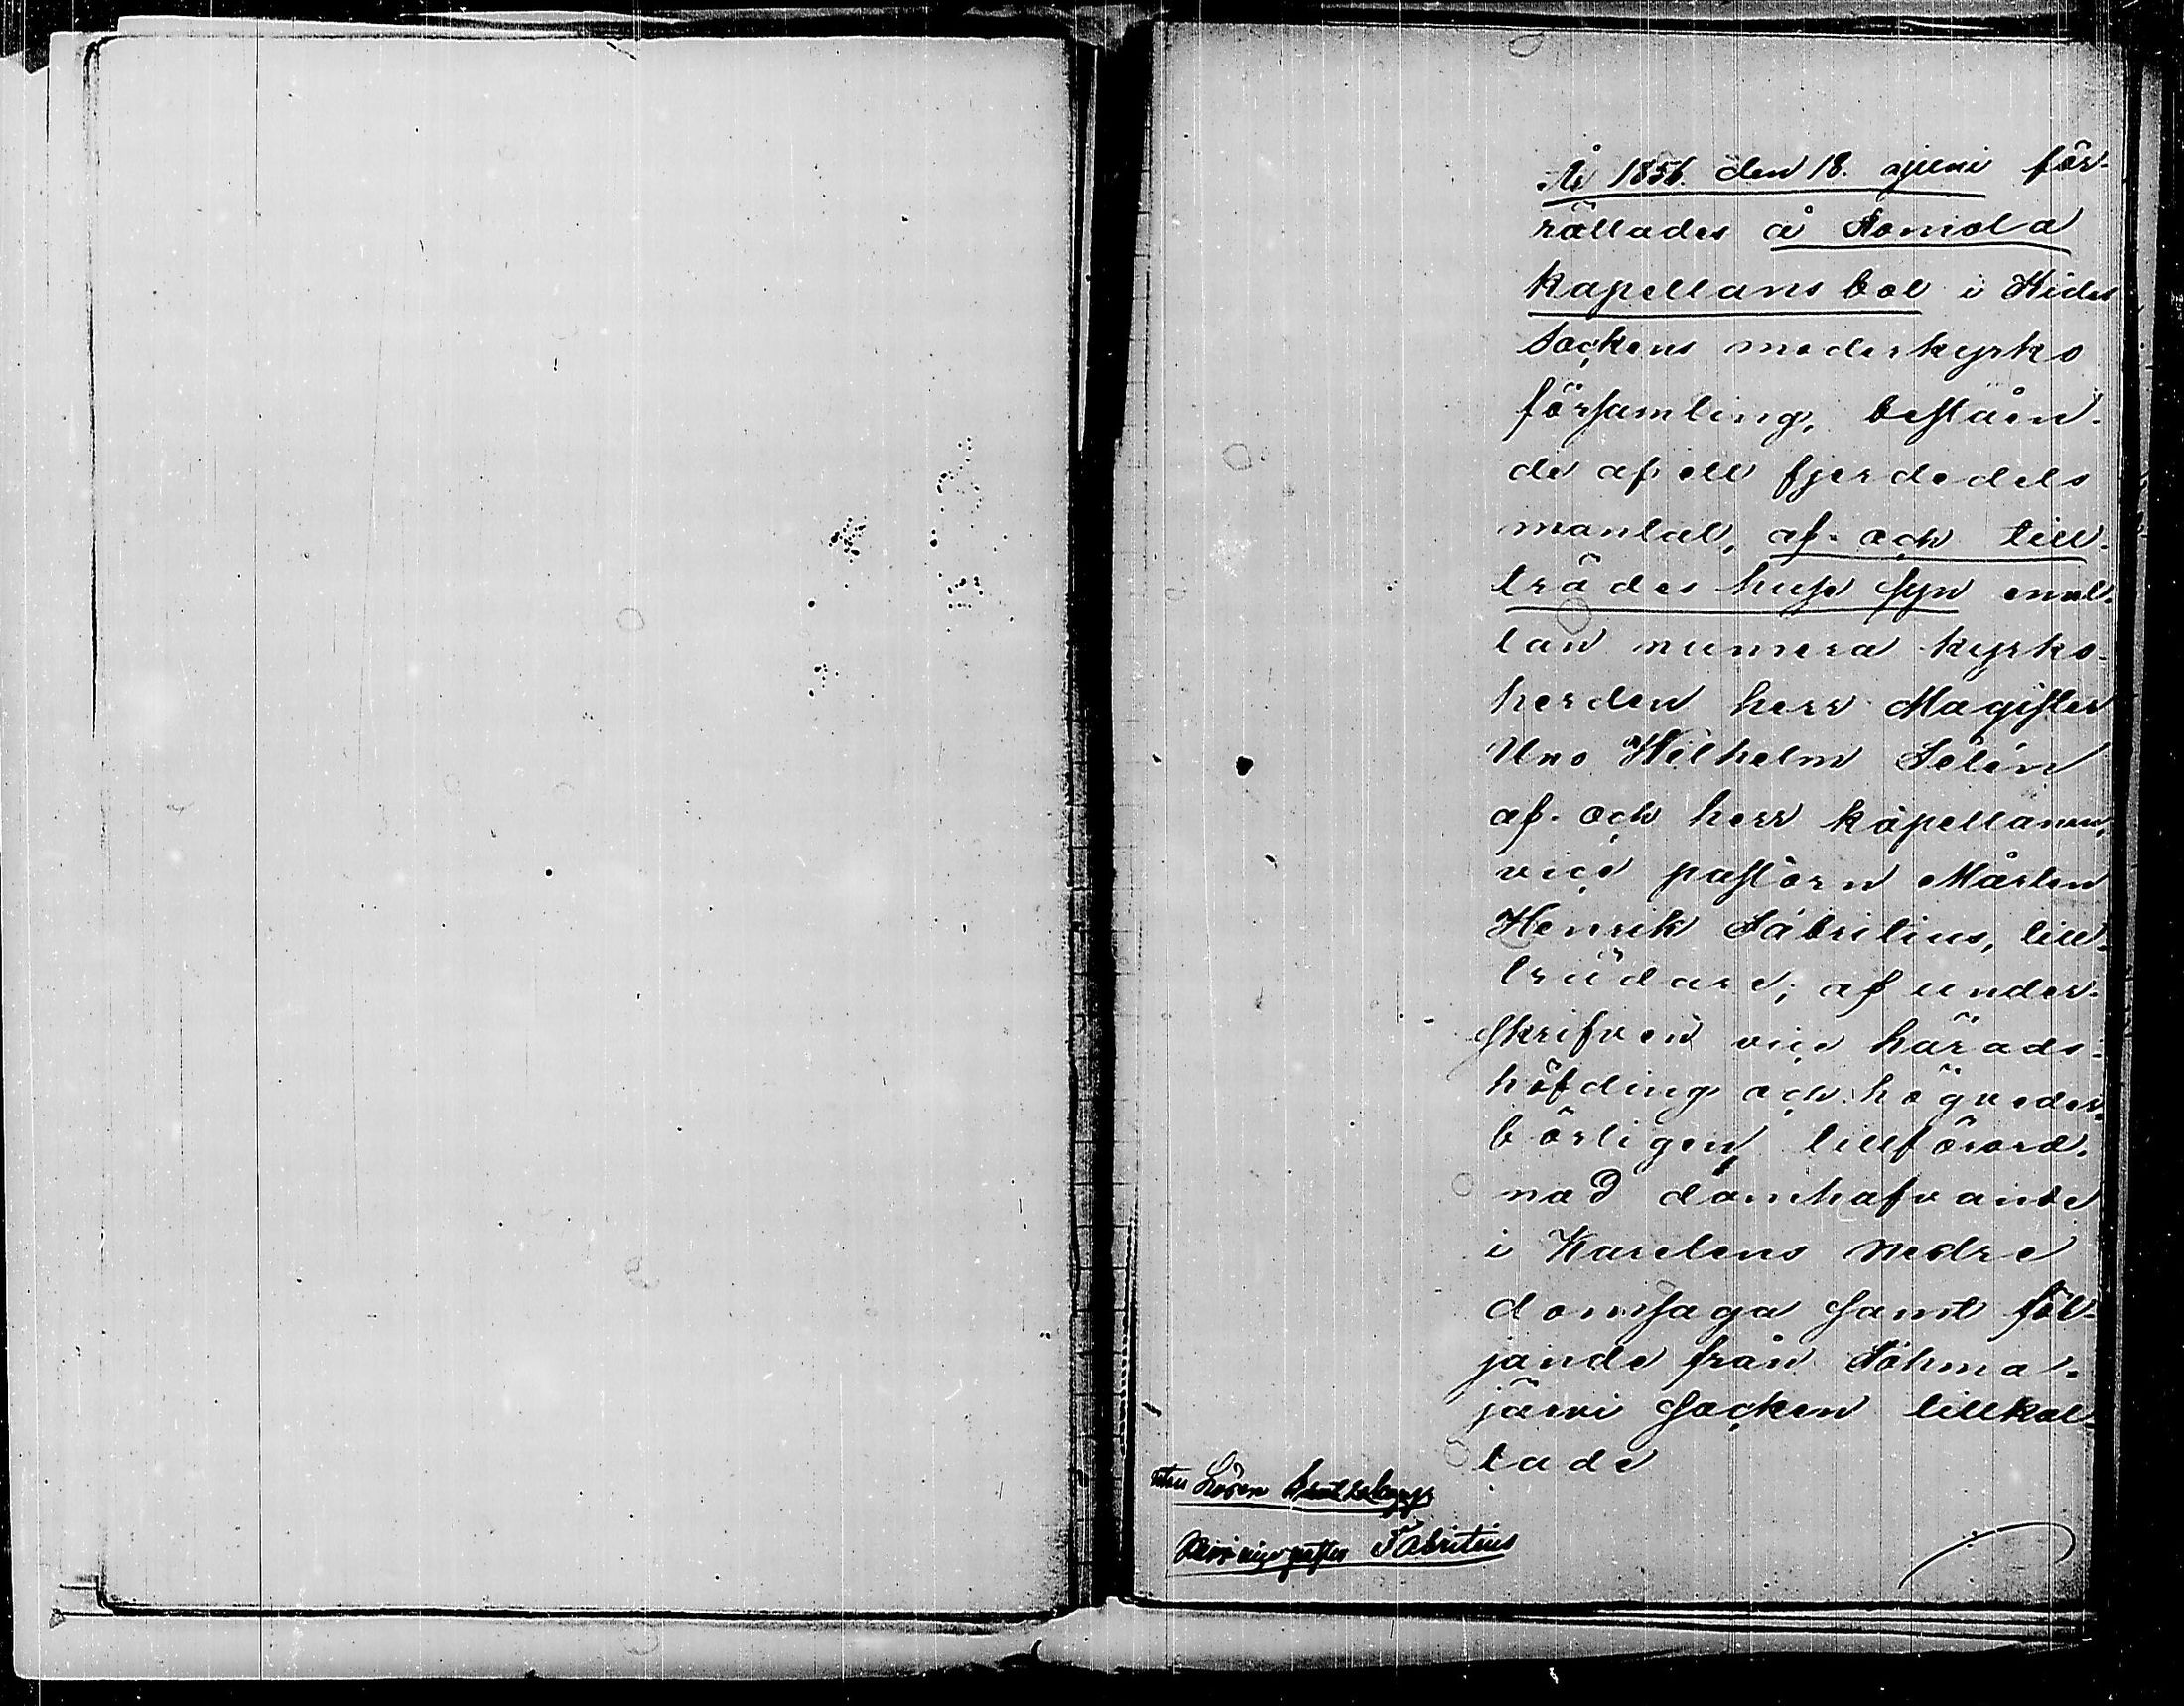 År 1856. den 18. juni för-
rättades å Romola
kapellans bol i Kides
sockens moderkyrko
församling, beståen-
de af ett fjerdedels
mantal, af- och till-
trädes husesyn emel-
lan numera kyrko-
herden herr Magister
Uno Wilhelm Telén
af- och herr kapellanen,
vice pastorn Mårten
Henrik Fabritius, till-
trädare; af under-
skrifven vice härads-
höfding och högveder-
börligen tillförord-
nad domhafvande
i Karelens nedre
domsaga samt föl-
jande från Tohma-
järvi socken tillkal-
lade
Lösen
Herr vice pastor Fabritius